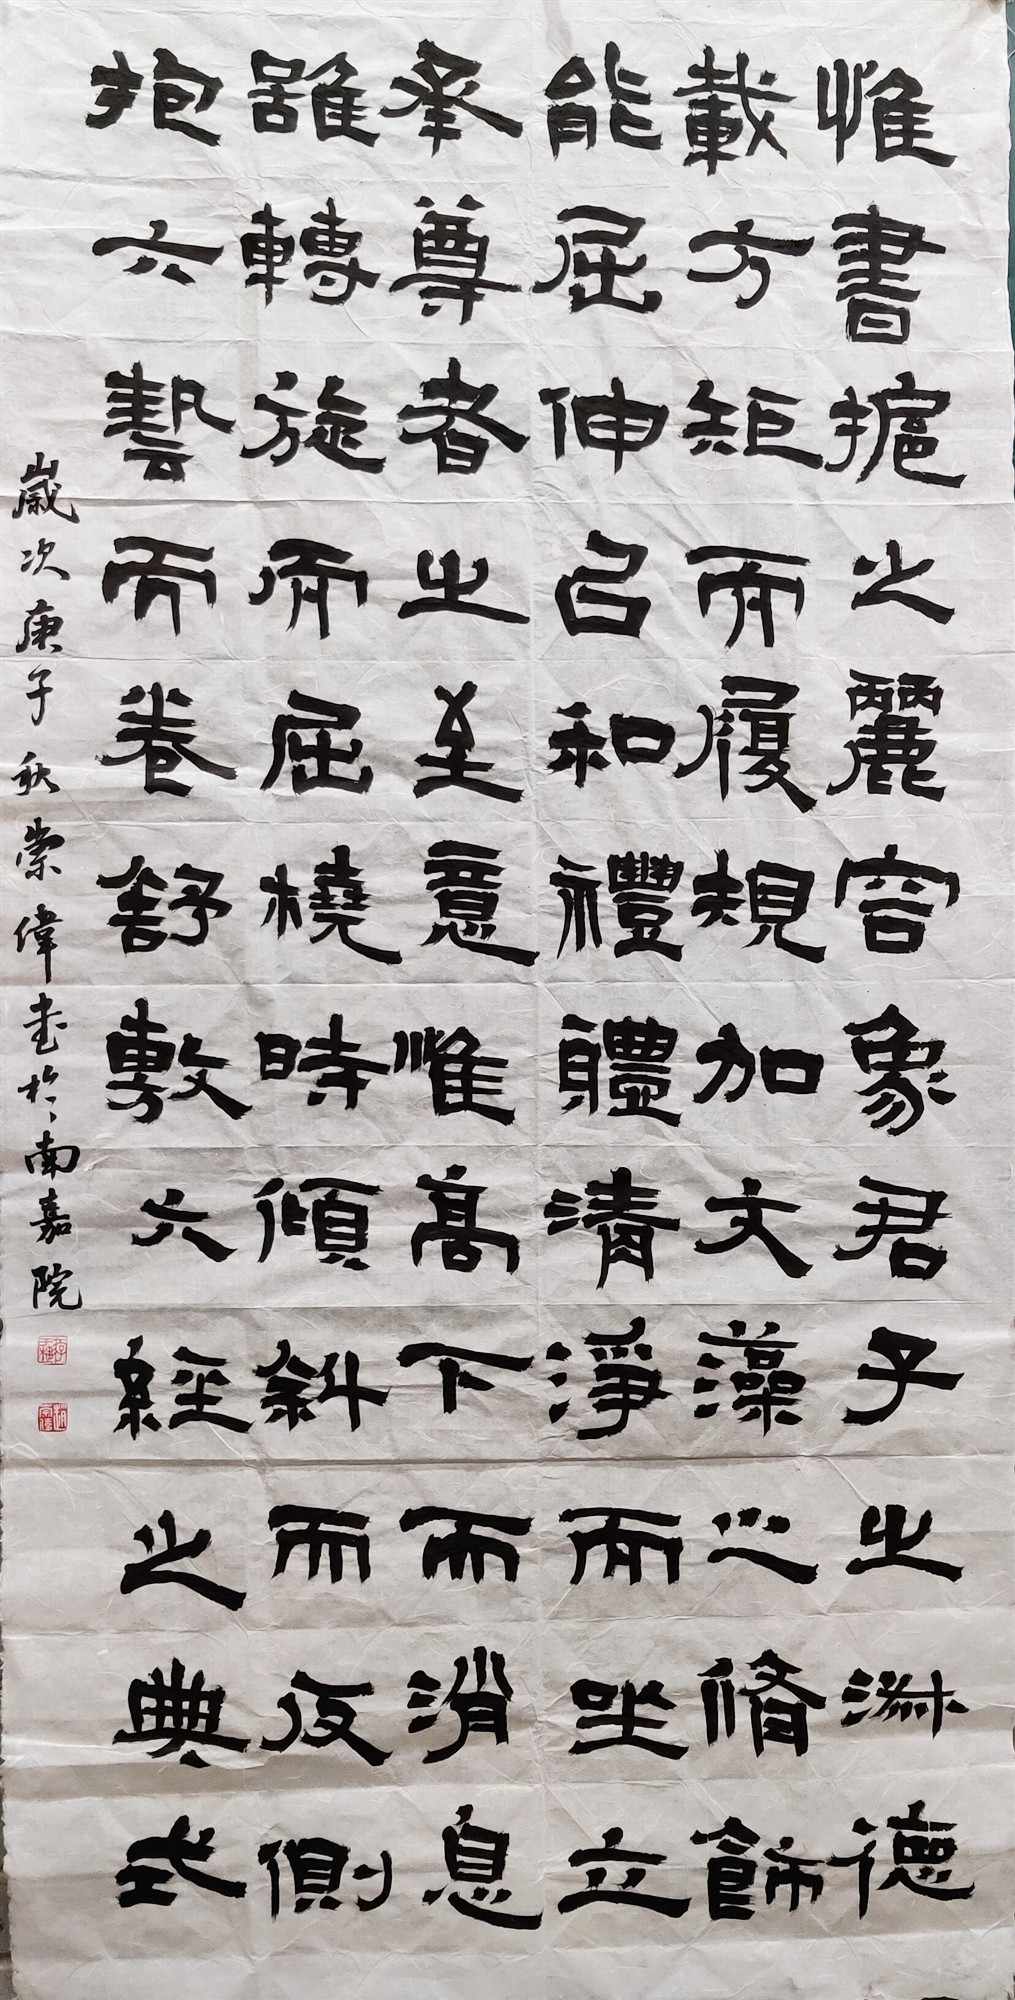 惟書摢之麗容象君子之淑德
載方矩而履規加文藻之脩飾
能屈伸㠯和禮體清淨而坐立
承尊者之至意惟高下而消息
雖轉旋而屈橈時傾斜而反側
抱六藝而卷舒敷六經之典式
歲次庚子秋崇偉书於南嘉院